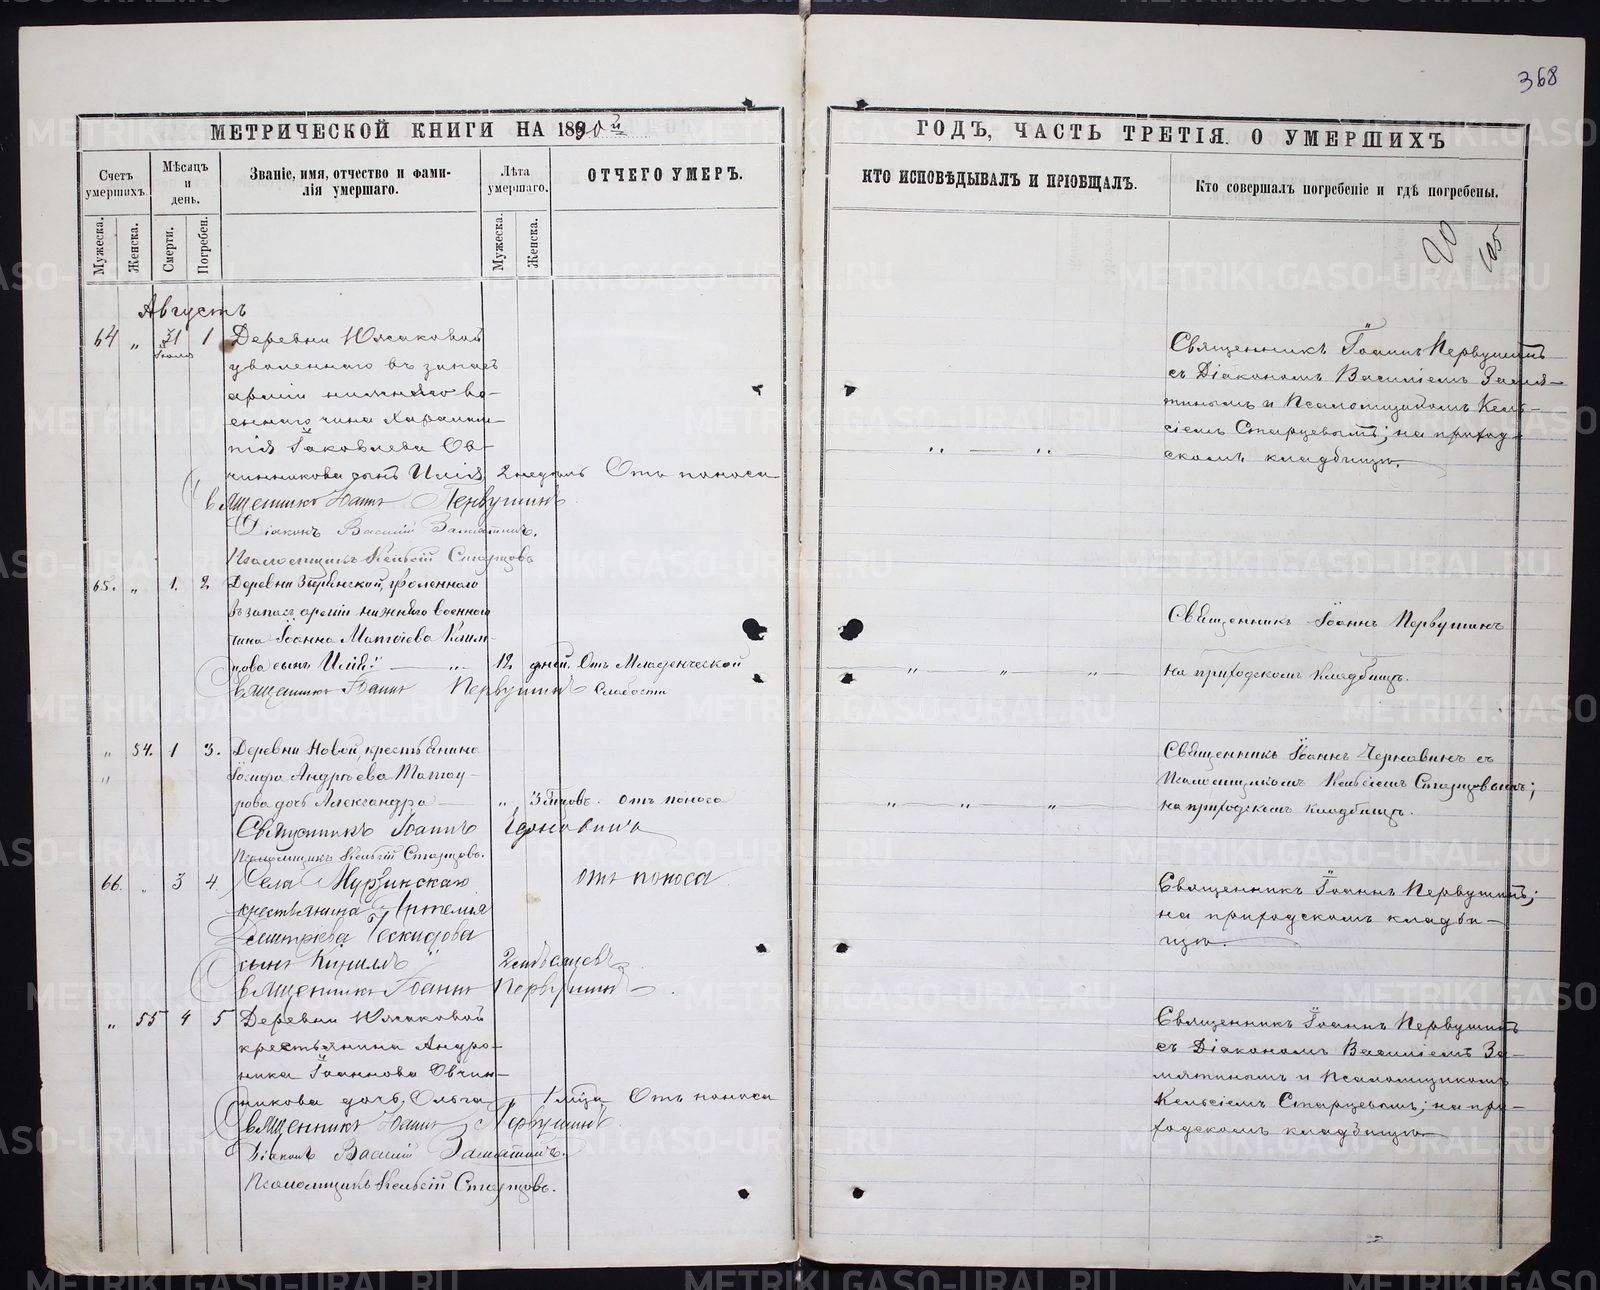 368
МЕТРИЧЕСКОЙ КНИГИ НА 1890й
ГОДЪ, ЧАСТЬ ТРЕТІЯ. О УМЕРШИХЪ
Счетъ умершихъ.
Мѣсяцъ и день.
Званіе, имя, отчество и фами-
лія умершаго.
Лѣта умершаго.
ОТЧЕГО УМЕРЪ.
КТО ИСПОВѢДЫВАЛЪ И ПРІОБЩАЛЪ.
Кто совершалъ погребеніе и гдѣ погребены.
Мужеска.
Женска.
Смерти.
Погребен.
Мужеска.
Женска.
Августъ
64 „ 31 Іюля 1 Деревни Юлаковой
уволеннаго въ запасъ
арміи нижняго во-
еннаго чина Харлам-
пія Іаковлева Ов-
чинникова сынъ Илія 2 недѣль Отъ поноса
Священникъ Іоаннъ Первушинъ
Діаконъ Василій Замятинъ.
Псаломщикъ Кельсій Старцовъ
Священникъ Іоаннъ Первушинъ
съ Діакономъ Василіемъ Замя-
тинымъ и Псаломщикомъ Кель-
сіемъ Старцевымъ; на приход-
скомъ кладбищѣ.
65. „ 1. 2 Деревни уволеннаго
въ запасъ арміи нижняго военнаго
чина Іоанна Матѳіева Клим-
цова сынъ Илія 12 дней. Отъ Младенческой
Священникъ Іоаннъ Первушинъ слабости
Священникъ Іоаннъ Первушинъ
на приходскомъ кладбищѣ.
„ 54. 1 3. Деревни Новой, крестьянина
Іосифа Андрѣева Татау-
рова дочь Александра „ 3 годовъ. отъ поноса
Священникъ Іоаннъ Чернавинъ
Псаломщикъ Кельсій Старцовъ.
Священникъ Іоаннъ Чернавинъ съ
Псаломщикомъ Кельсіемъ Старцовымъ;
на приходскомъ кладбищѣ.
66. „ 3 4. Села Мурзинскаго отъ поноса
крестьянина Артемія
Димтріева
сынъ Кириллъ 2 мѣсяцевъ
Священникъ Іоаннъ Первушинъ
Священникъ Іоаннъ Первушинъ;
на приходскомъ кладби-
щѣ.
„ 55 4 5 Деревни Юлаковой
крестьянина Андро-
ника Іоаннова Овчин-
никова дочь Ольга „ 1 мѣца Отъ поноса
Священникъ Іоаннъ Первушинъ
Діаконъ Василій Замятинъ.
Псаломщикъ Кельсій Старцовъ.
Священникъ Іоаннъ Первушинъ
съ Діакономъ Василіемъ За-
мятинымъ и Псаломщикомъ
Кельсіемъ Старцевымъ; на при-
ходскомъ кладбищѣ.
METRIKI.GASO-URAL.RU